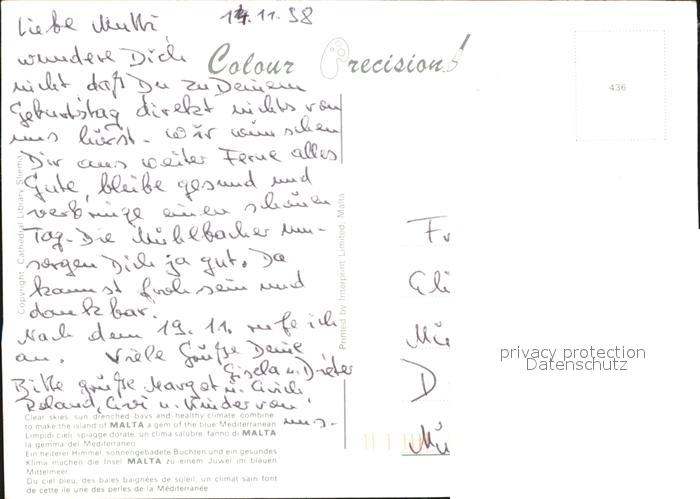 Liebe Mutti, 14.11.98
wundere Dich
nicht daß Du zu Deinem
Geburtstag direkt nichts von
uns hörst. Wir wünschen
Dir aus weiter Ferne alles
Gute, bleibe gesund und
verbringe einen schönen
Tag. Die Mühlbacher um-
sorgen Dich ja gut. Da
kannst froh sein und
dankbar.
Nach dem 19.11. rufe ich
an. Viele Grüße Deine
Gisela u. Dieter
Bitte grüße Margot u.
Roland, u. Kinder von
uns.
Colour Precision
436
Copyright Cathedral Library Sliema
Printed by Interprint Limited, Malta
Clear skies, sun drenched bays and healthy climate combine
to make the island of MALTA a gem of the blue Mediterranean
Limpidi cieli, spiagge dorate, un clima salubre, fanno di MALTA
la gemma del Mediterraneo
Ein heiterer Himmel, sonnengebadete Buchten und ein gesundes
Klima machen die Insel MALTA zu einem Juwel im blauen
Mittelmeer.
Du ciel bleu, des baies baignées de soleil, un climat sain font
de cette île une des perles de la Méditerranée
Fr
Mü
D
Mü
privacy protection
Datenschutz